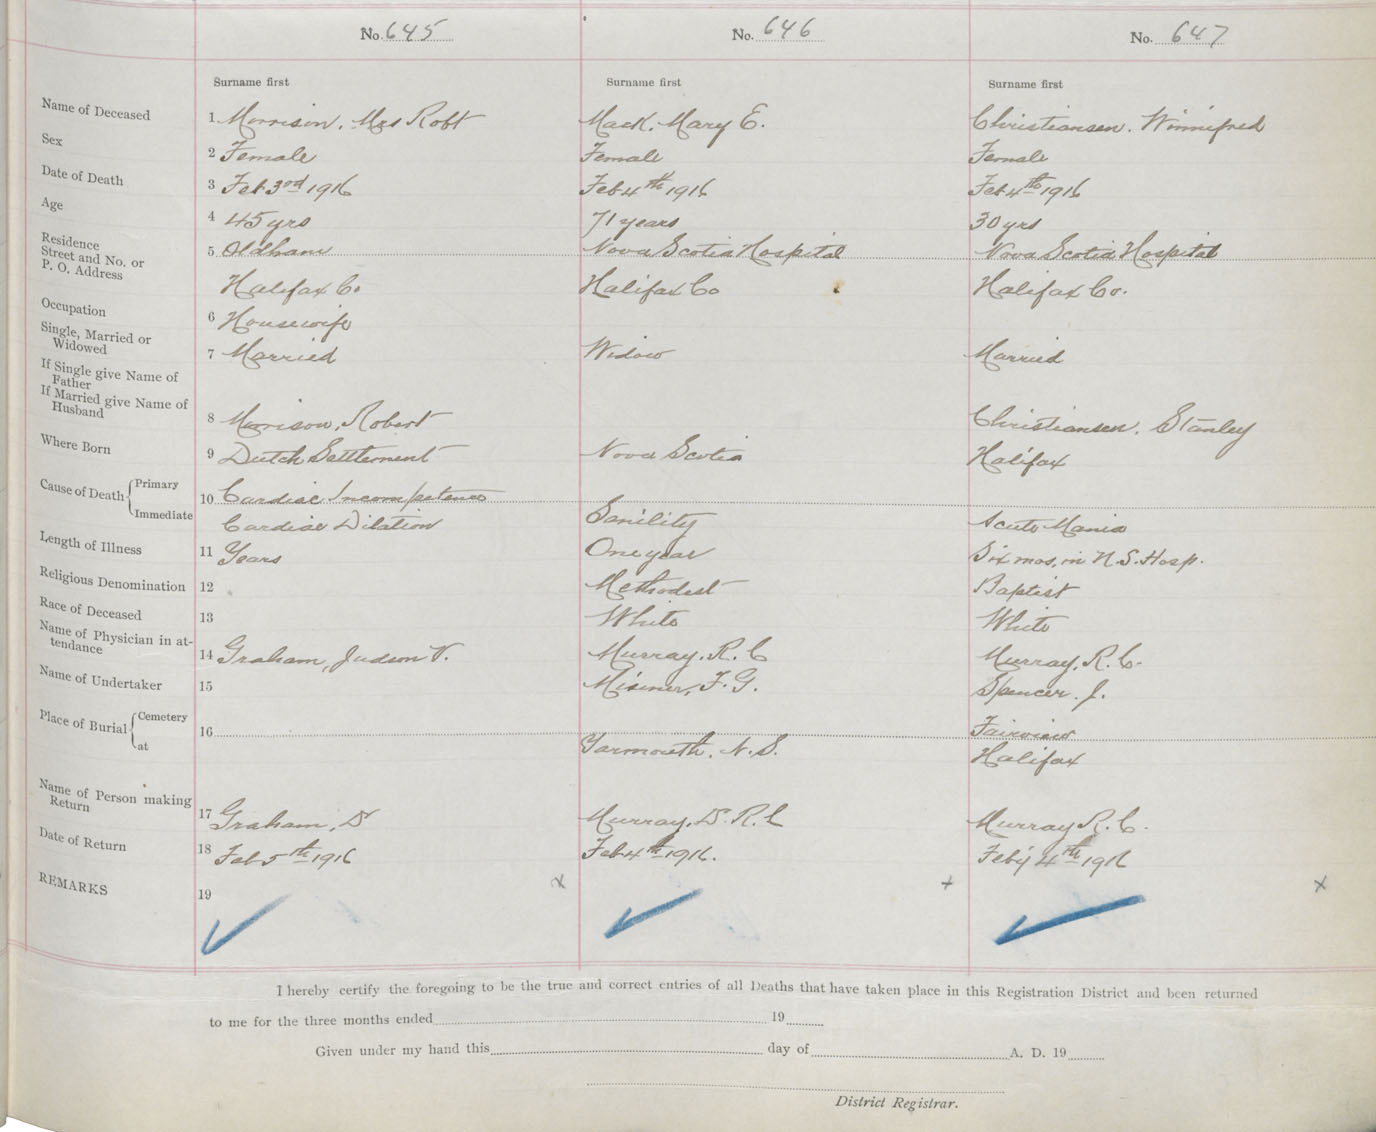 No. 645 No. 646 No. 647
Surname first Surname first Surname first
Name of Deceased 1 Morrison, Mrs Robt Mack, Mary E. Christiansen, Winnifred
Sex 2 Female Female Female
Date of Death 3 Feb 3rd 1916 Feb 4th 1916 Feb 4th 1916
Age 4 45 yrs 71 years 30 yrs
Residence Street and No. or P. O. Address 5 Oldham Nova Scotia Hospital Nova Scotia Hospital
Halifax Co Halifax Co Halifax Co.
Occupation 6 Housewife
Single, Married or Widowed 7 Married Widow Married
If Single give Name of Father
If Married give Name of Husband 8 Morrison, Robert Christiansen, Stanley
Where Born 9 Dutch Settlement Nova Scotia Halifax
Cause of Death Primary 10 Cardiac Incompetence
Immediate Cardiac Dilation Sanility Acute Mania
Length of Illness 11 Years One year Six mos, in N.S. Hosp.
Religious Denomination 12 Methodist Baptist
Race of Deceased 13 White White
Name of Physician in attendance 14 Graham, Judson V. Murray, R. C Murray, R. C.
Name of Undertaker 15 Misener, F. G. Spencer, J.
Place of Burial Cemetery 16 Fairview
at Yarmouth, N.S. Halifax
Name of Person making Return 17 Graham, D Murray, D. R. C Murray R. C.
Date of Return 18 Feb 5th 1916 Feb 4th 1916. Feb'y 4th 1916
REMARKS 19 x + x
I hereby certify the foregoing to be the true and correct entries of all Deaths that have taken place in this Registration District and been returned
to me for the three months ended 19
Given under my hand this day of A. D. 19
District Registrar.